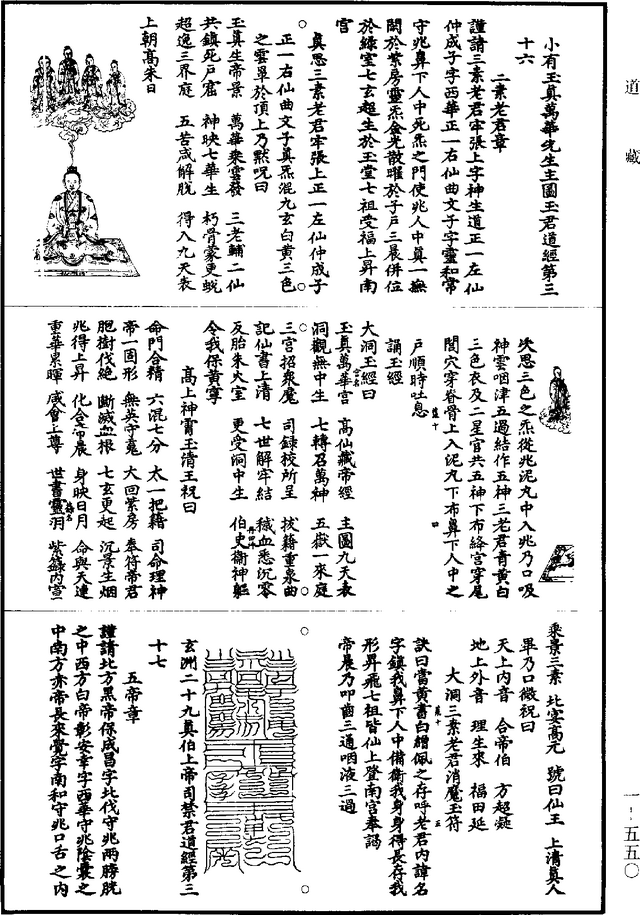 道藏
小有玉真萬華先生主圖玉君道經第三
十六
二素老君章
謹請三素老君牢張上字神生道正一左仙
仲成子字西華正一右仙曲文子字靈和常
守兆鼻下人中死炁之門使兆人中真一無
關於紫房靈炁金光散曜於子戶三晨併位
於綠室七玄超生於玉堂七祖受福上昇南
宮
真思三素老君牢張上正一左仙仲成子
正一右仙曲文子真炁混九玄白黃三色
之雲單於頂上乃默呪曰
玉真生帝景 萬華乘雲發 三老輔二仙
共鎮死戶窟 神映七華生 朽骨蒙更蛻
超逸三界庭 五苦咸解脫 得入九天表
上朝高朱日
次思三色之炁從兆泥丸中入兆乃口吸
神雲咽津五過結作五神三老君青黃白
三色衣及二星官共五神下布絳宮穿尾
閭穴穿脊骨上入泥丸下布鼻下人中之
戶順時吐息
誦玉經
大洞玉經曰
玉真萬華宮 高仙藏帝經 主圖九天表
洞觀無中生 七轉召萬神 五嶽一來庭
三宮招衆魔 司錄校所呈 拔籍重泉曲
記仙書上清 七世解牢結 穢血悉沉零
反胎朱火室 更受洞中生 伯史衛神軀
令我保黃寧
高上神霄玉清王祝曰
命門合精 六混七分 太一把籍 司命理神
帝一固形 無英守魂 大回紫房 奉符帝君
胞樹伐絕 斷滅血根 七玄更起 沉景生烟
兆得上昇 化合帝晨 身映日月 命與天連
重華累暉 咸會上尊 世書靈羽 紫籙內宣
乘景三素 北宴高元 號曰仙王 上清真人
畢乃口微祝曰
天上內音 合帝伯 方超凝
地上外音 理生來 福田延
大洞三素老君消魔玉符
訣曰當黃書白繒佩之存呼老君內諱名
字鎮我鼻下人中備衛我身身得長存我
形昇飛七祖皆仙上登南宮奉謁
帝晨乃叩齒三通咽液三過
玄洲二十九真伯上帝司禁君道經第三
十七
五帝章
謹請北方黑帝保成昌字北伐守兆兩膀胱
之中西方白帝彰安幸字西華守兆陰囊之
中南方赤帝長來覺字南和守兆口舌之內
一-五五〇